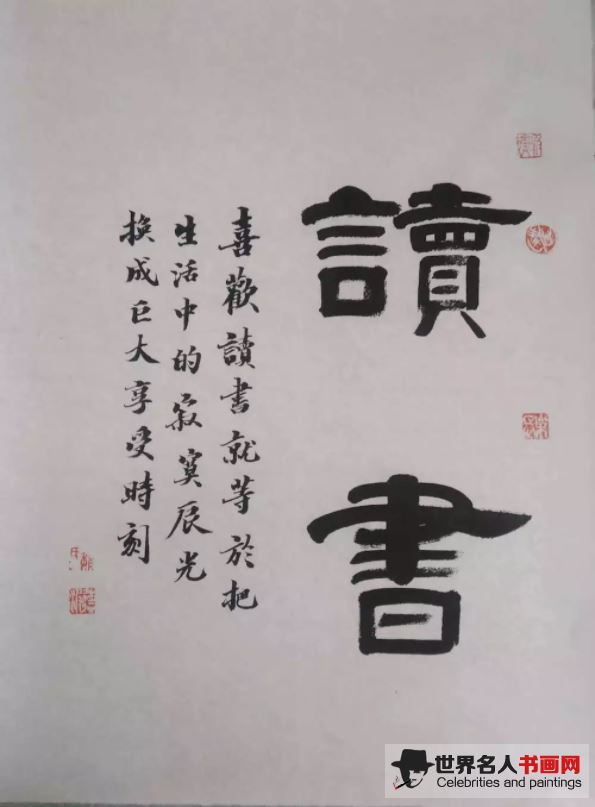 讀書
喜歡讀書就等於把
生活中的寂寞辰光
換成巨大享受時刻
世界名人书画网
Celebrities and paintings